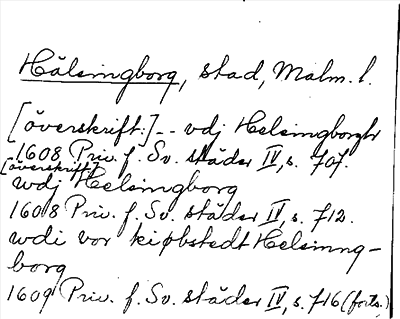 Hälsingborg, stad, Malm. l.
[överskrift:] -- vdj Helsingborgh
1608 Priv. f. Sv. städer IV, s. 707.
[överskrift]
wdj Helsingborg
1608 Priv. f. Sv. städer IV, s. 712.
wdi vor kiøbstedt Helsinng-
borg
1609 Priv. f. Sv. städer IV, s. 716 (forts.)